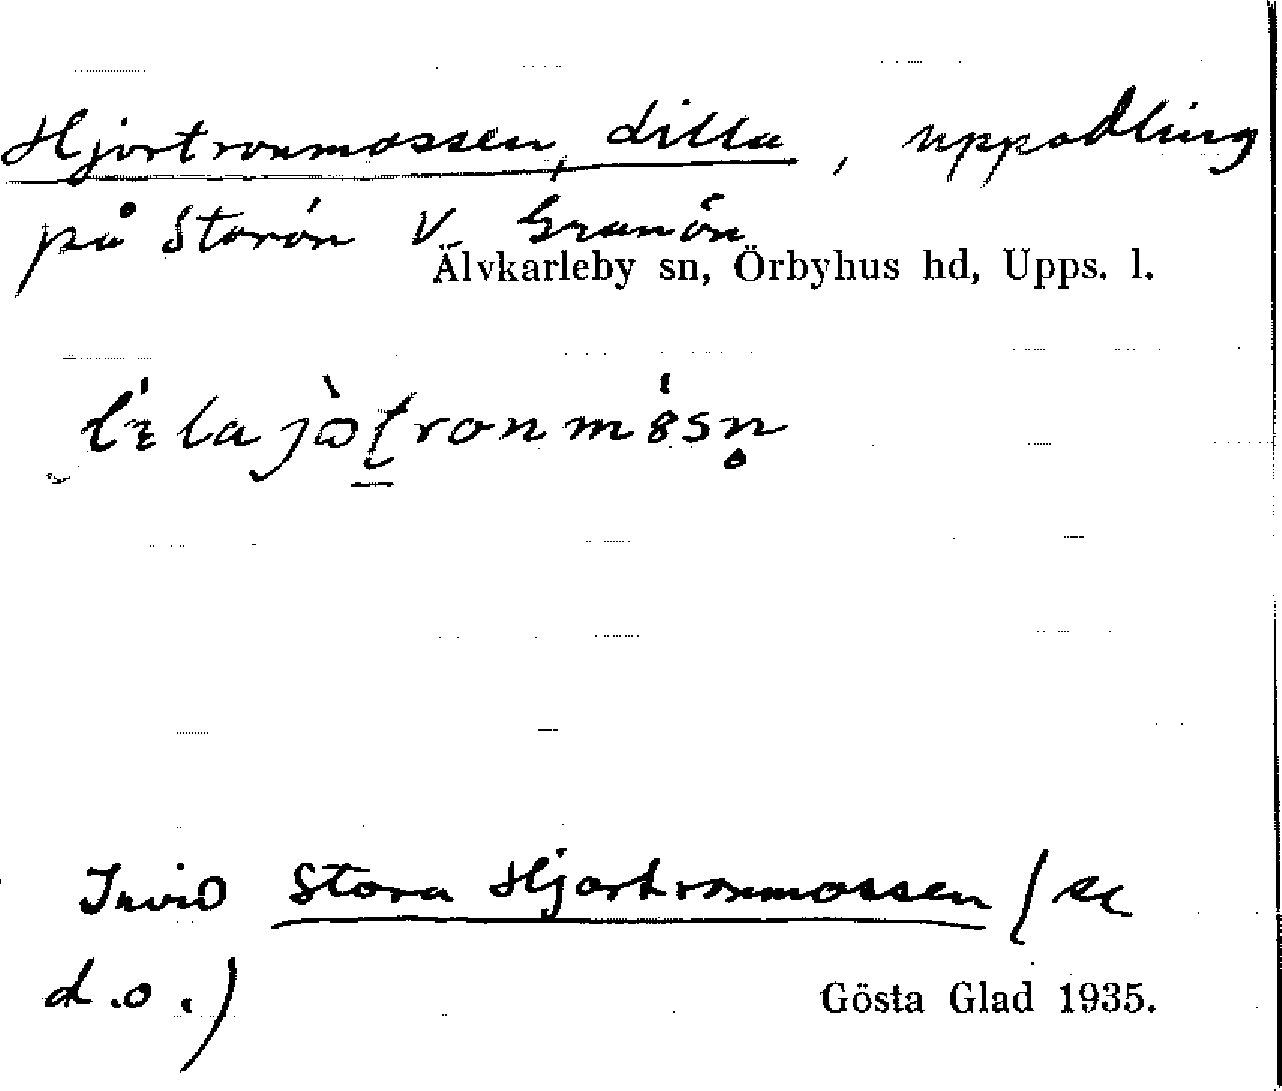 Hjortronmossen, Lilla, uppodling
på Storön V. Granön
Älvkarleby sn, Örbyhus hd, Upps. l.
Invid Stora Hjortronmossen (se
d.o.)
Gösta Glad 1935.